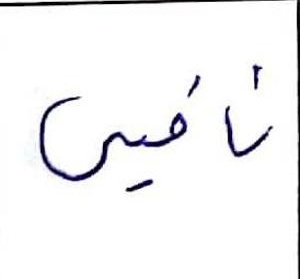 نافيس